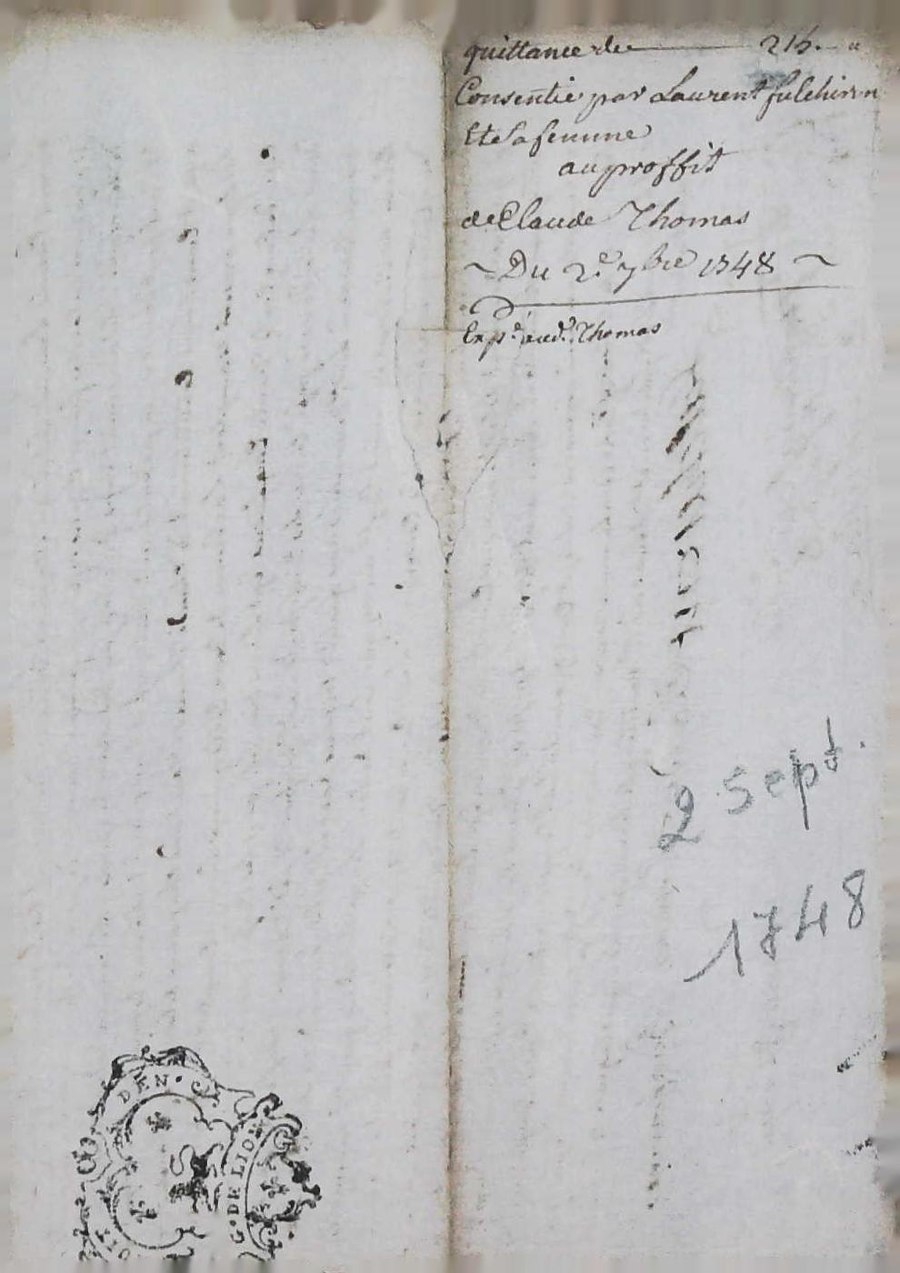 quittance de 216.
Consentie par Laurent fulchiron
Et Sa femme
au proffit
de Claude Thomas
~ Du 2e 7bre 1748 ~
Expe. aud. Thomas
2 Sept.
1748
DEN.
G. DE LIO